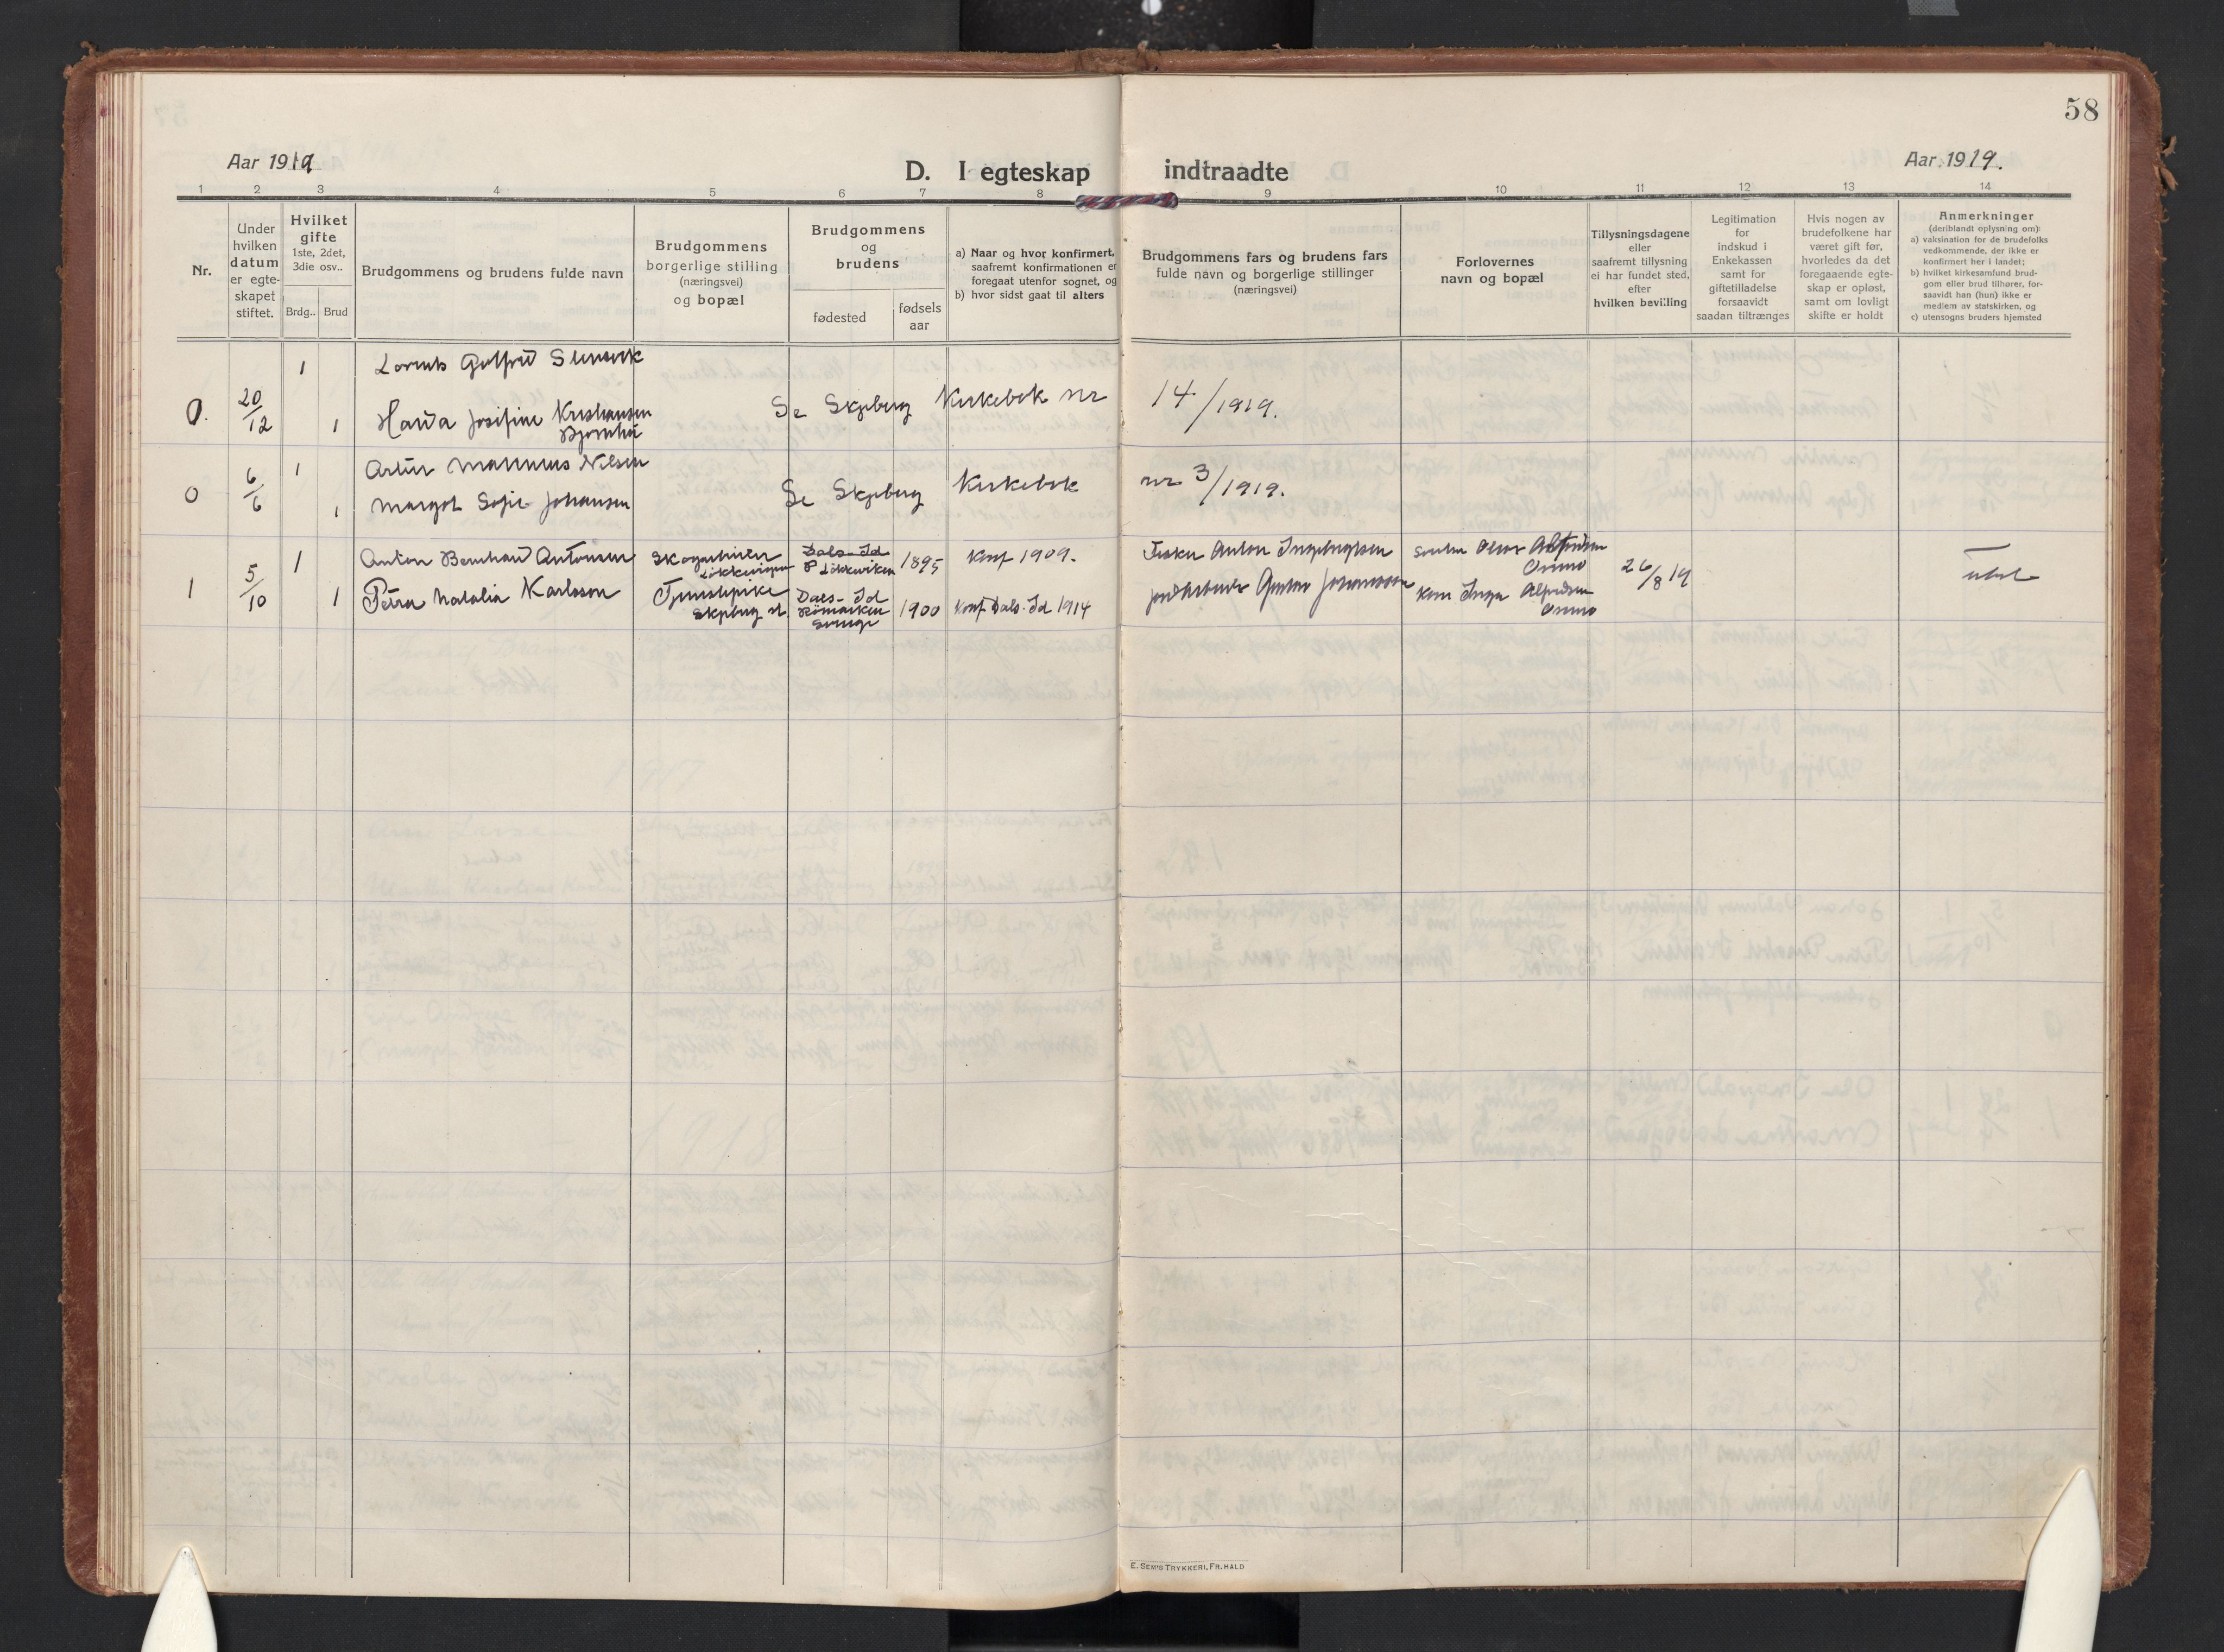 58
Aar 1919
D. I egteskap indtraadte
Aar 1919.
1 2 3 4 5 6 7 8 9 10 11 12 13 14
Nr.
Under hvilken datum er egteskapet stiftet.
Hvilket gifte
1ste, 2det, 3die osv..
Brdg.. Brud
Brudgommens og brudens fulde navn
Brudgommens borgerlige stilling (næringsvei) og bopæl
Brudgommens og brudens
fødested
fødsels aar
a) Naar og hvor konfirmert,
saafremt konfirmationen er
foregaat utenfor sognet, og
b) hvor sidst gaat til alters
Brudgommens fars og brudens fars
fulde navn og borgerlige stillinger
(næringsvei)
Forlovernes
navn og bopæl
Tillysningsdagene
eller
saafremt tillysning
ei har fundet sted,
efter
hvilken bevilling
Legitimation
for
indskud i
Enkekassen
samt for
giftetilladelse
forsaavidt
saadan tiltrænges
Hvis nogen av
brudefolkene har
været gift før,
hvorledes da det
foregaaende egte-
skap er opløst,
samt om lovligt
skifte er holdt
Anmerkninger
(deriblandt oplysning om):
a) vaksination for de brudefolks
vedkommende, der ikke er
konfirmert her i landet;
b) hvilket kirkesamfund brud-
gom eller brud tilhører, for-
saavidt han (hun) ikke er
medlem av statskirken, og
c) utensogns bruders hjemsted
0. 20/12 1
1 Josefine Kristiansen
Se Skjeberg Kirkebok nr 14/1919.
0 6/6 1 Artur Nilsen
1 Margot Sofie Johansen
Se Skjeberg Kirkebok nr 3/1919.
1 5/10 1 Anton Bernhard Antonsen
Dals-Id
1895 Konf 1909.
Fisker Anton Ingebrigtsen
26/8 19
1 Petra Natalia Karlsson
Tjenestepike
Skjeberg st.
Dals-Id
Römarken
Sverige
1900 Konf. Dals-Id 1914
Gustav Johansson
E. SEM'S TRYKKERI, FR.HALD